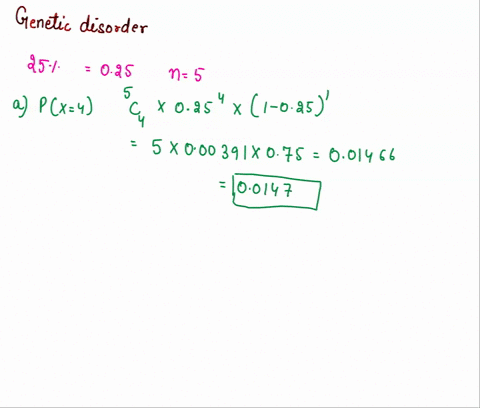 Genetic disorder
25% = 0.25 n=5
a) P(x=4) ⁵C₄ × 0.25⁴ × (1-0.25)¹
= 5 × 0.00391 × 0.75 = 0.01466
= 0.0147